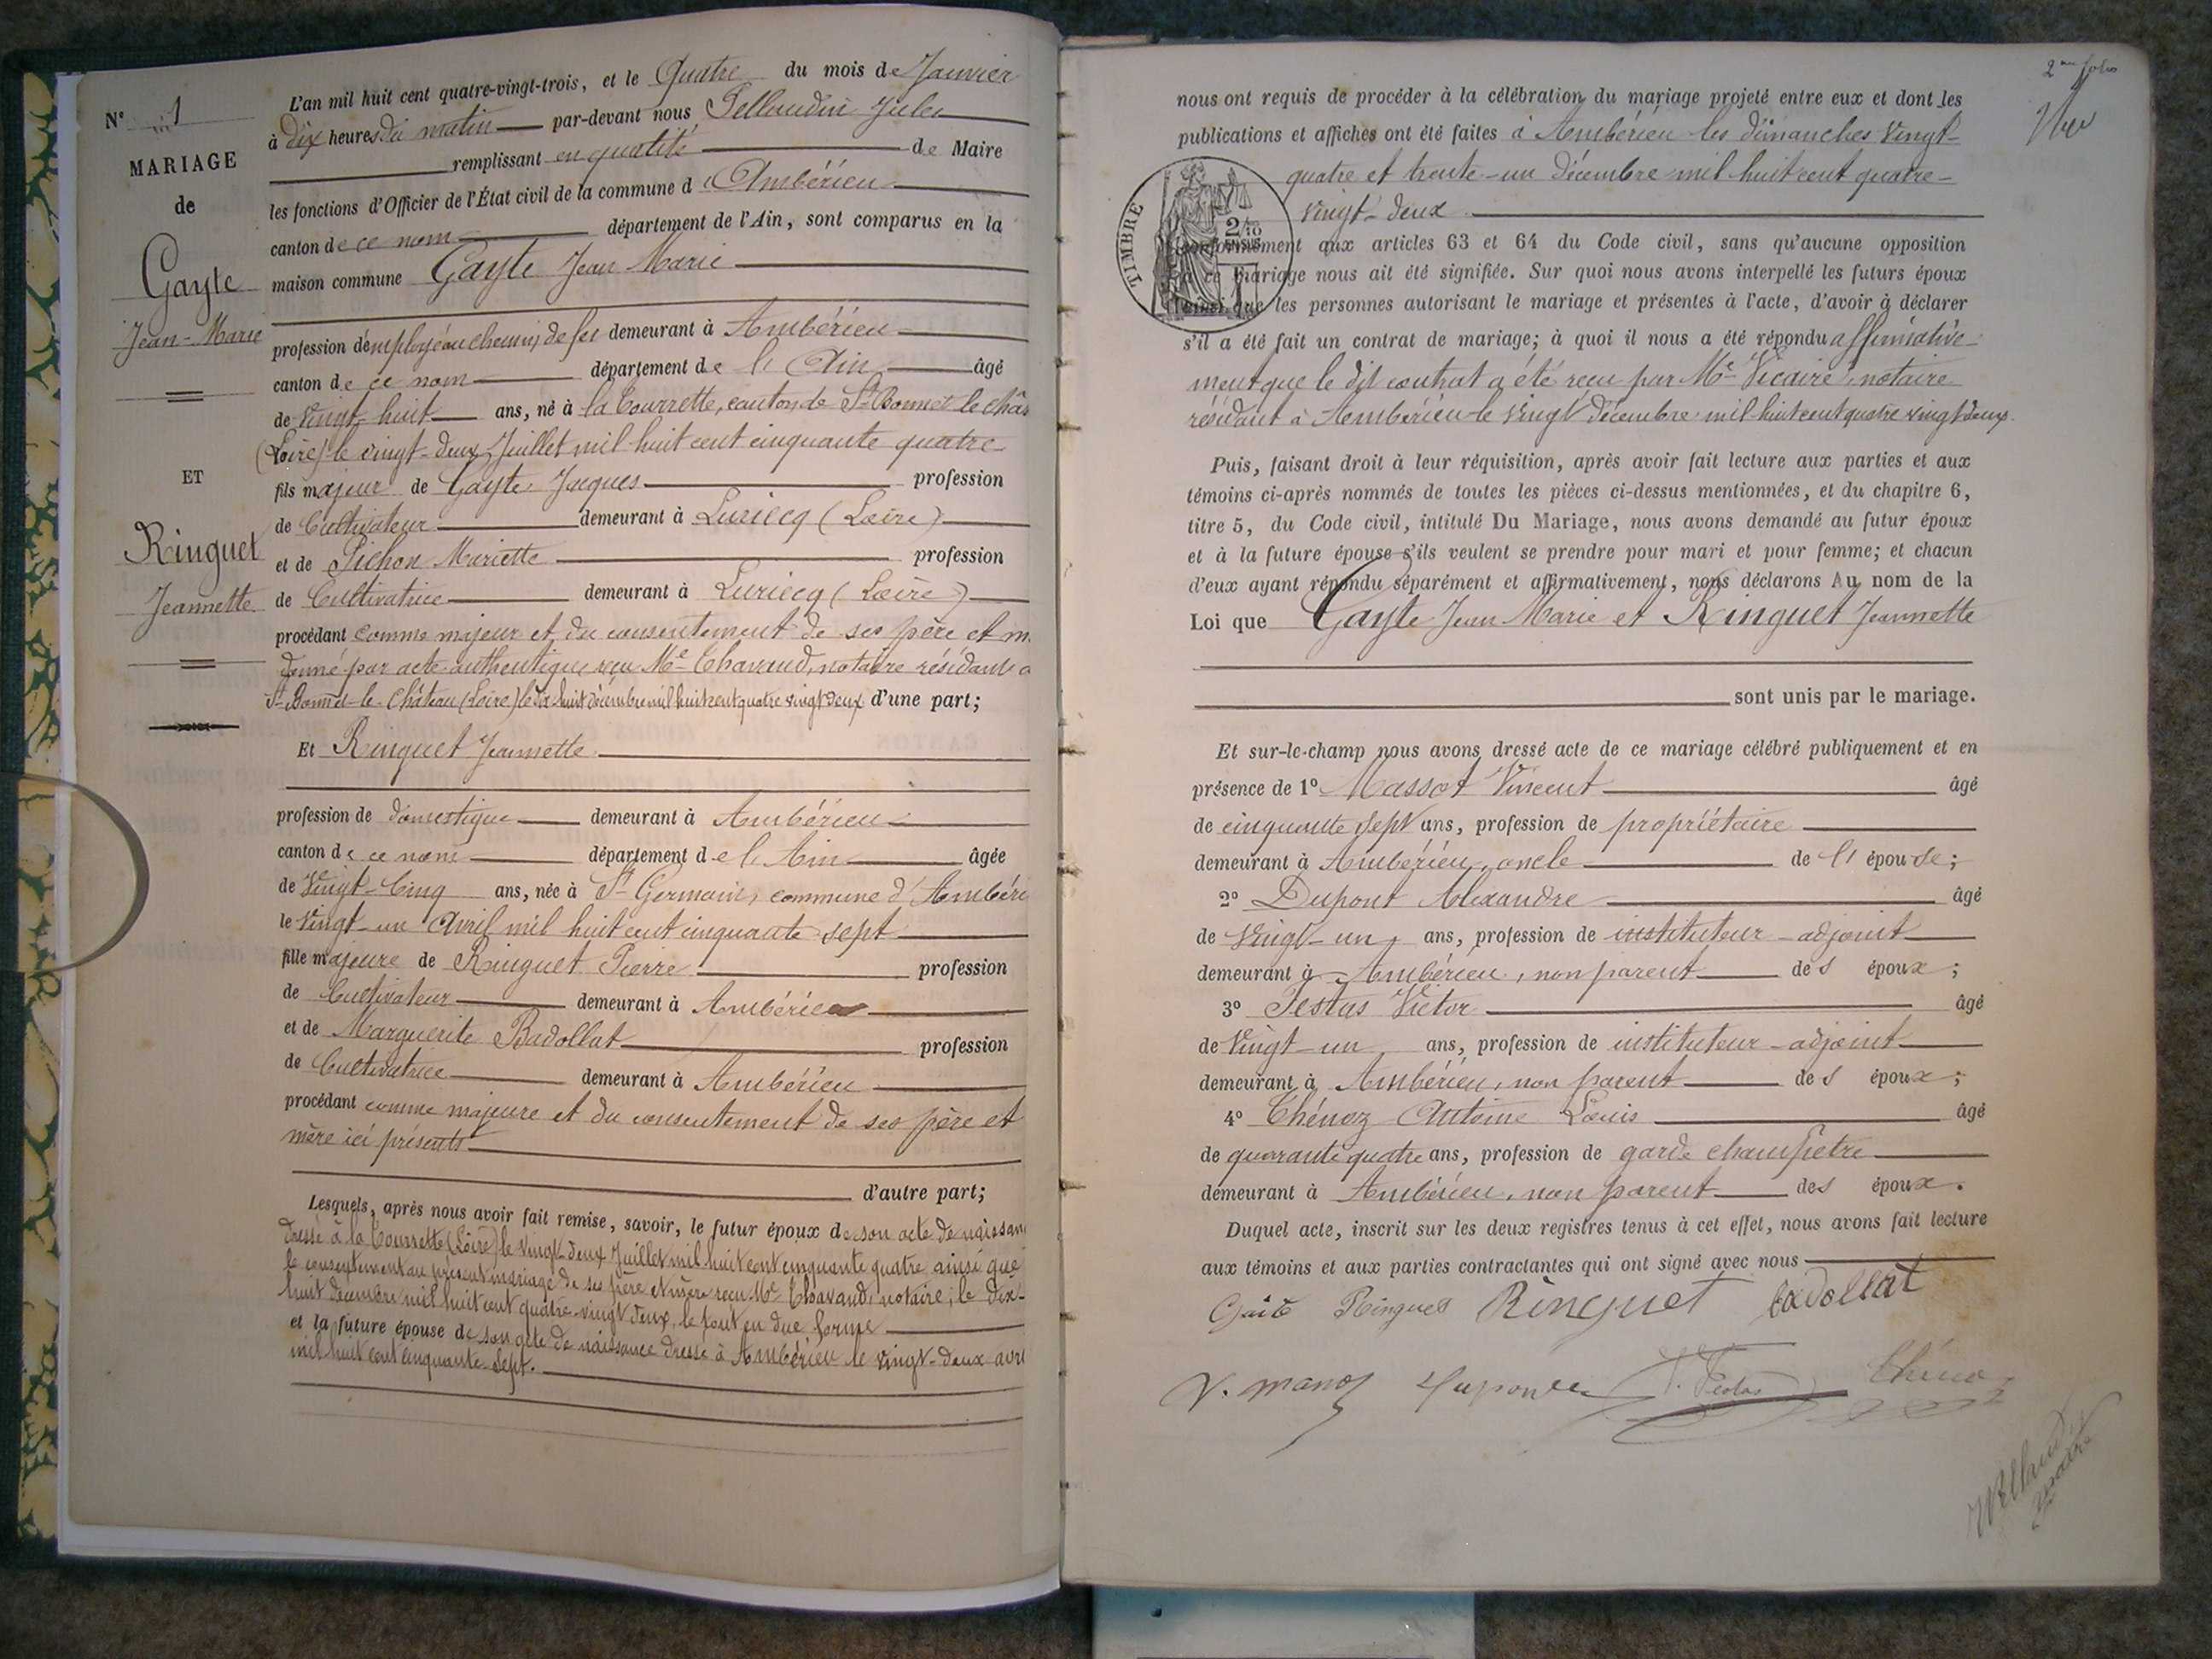 N° 1
MARIAGE
de
Gayte
Jean-Marie
ET
Ringuet
Jeannette
L'an mil huit cent quatre-vingt-trois, et le Quatre du mois de Janvier
à dix heures du matin par-devant nous Pellaudin Jules
remplissant en qualité de Maire
les fonctions d'Officier de l'État civil de la commune d'Ambérieu
canton de ce nom département de l'Ain, sont comparus en la
maison commune Gayte Jean Marie
profession d'employé au chemin de fer demeurant à Ambérieu
canton de ce nom département de l'Ain âgé
de vingt-huit ans, né à la Tourrette, canton de St Bonnet le Châ
(Loire) le vingt-deux Juillet mil huit cent cinquante quatre
fils majeur de Gayte Jacques profession
de Cultivateur demeurant à Luriecq (Loire)
et de Pichon Mariette profession
de Cultivatrice demeurant à Luriecq (Loire)
procédant comme majeur et du consentement de ses père et m
donné par acte authentique reçu Me Chavaud, notaire résidant à
St Bonnet-le-Château (Loire) le dix huit décembre mil huit cent quatre vingt deux d'une part;
Et Ringuet Jeannette
profession de domestique demeurant à Ambérieu
canton de ce nom département de l'Ain âgée
de Vingt-Cinq ans, née à St Germain, commune d'Ambéri
le Vingt-un Avril mil huit cent cinquante sept
fille majeure de Ringuet Pierre profession
de Cultivateur demeurant à Ambérieu
et de Marguerite Badollat profession
de Cultivatrice demeurant à Ambérieu
procédant comme majeure et du consentement de ses père et
mère ici présents
d'autre part;
Lesquels, après nous avoir fait remise, savoir, le futur époux de son acte de naissan
dressé à la Tourrette (Loire) le vingt-deux Juillet mil huit cent cinquante quatre ainsi que
le consentement au présent mariage de ses père et mère reçu Me Chavaud, notaire, le dix-
huit décembre mil huit cent quatre-vingt deux, le tout en due forme
et la future épouse de son acte de naissance dressé à Ambérieu le vingt-deux avri
mil huit cent cinquante-sept.
2me folio
nous ont requis de procéder à la célébration du mariage projeté entre eux et dont les
publications et affiches ont été faites à Ambérieu les dimanches vingt-
quatre et trente-un décembre mil huit cent quatre-
vingt-deux
TIMBRE
conformément aux articles 63 et 64 du Code civil, sans qu'aucune opposition
à ce mariage nous ait été signifiée. Sur quoi nous avons interpellé les futurs époux
ainsi que les personnes autorisant le mariage et présentes à l'acte, d'avoir à déclarer
s'il a été fait un contrat de mariage; à quoi il nous a été répondu affirmative-
ment que le dit contrat a été reçu par Me Vicaire, notaire
résidant à Ambérieu le vingt décembre mil huit cent quatre vingt deux.
Puis, faisant droit à leur réquisition, après avoir fait lecture aux parties et aux
témoins ci-après nommés de toutes les pièces ci-dessus mentionnées, et du chapitre 6,
titre 5, du Code civil, intitulé Du Mariage, nous avons demandé au futur époux
et à la future épouse s'ils veulent se prendre pour mari et pour femme; et chacun
d'eux ayant répondu séparément et affirmativement, nous déclarons Au nom de la
Loi que Gayte Jean Marie et Ringuet Jeannette
sont unis par le mariage.
Et sur-le-champ nous avons dressé acte de ce mariage célébré publiquement et en
présence de 1° Massot Vincent âgé
de cinquante sept ans, profession de propriétaire
demeurant à Ambérieu, oncle de l'épouse;
2° Dupont Alexandre âgé
de Vingt-un ans, profession de instituteur-adjoint
demeurant à Ambérieu, non parent des époux;
3° Festas Victor âgé
de Vingt-un ans, profession de instituteur-adjoint
demeurant à Ambérieu, non parent des époux;
4° Chénoz Antoine Louis âgé
de quarante quatre ans, profession de garde champêtre
demeurant à Ambérieu, non parent des époux.
Duquel acte, inscrit sur les deux registres tenus à cet effet, nous avons fait lecture
aux témoins et aux parties contractantes qui ont signé avec nous
Gaite Ringuet Ringuet badollat